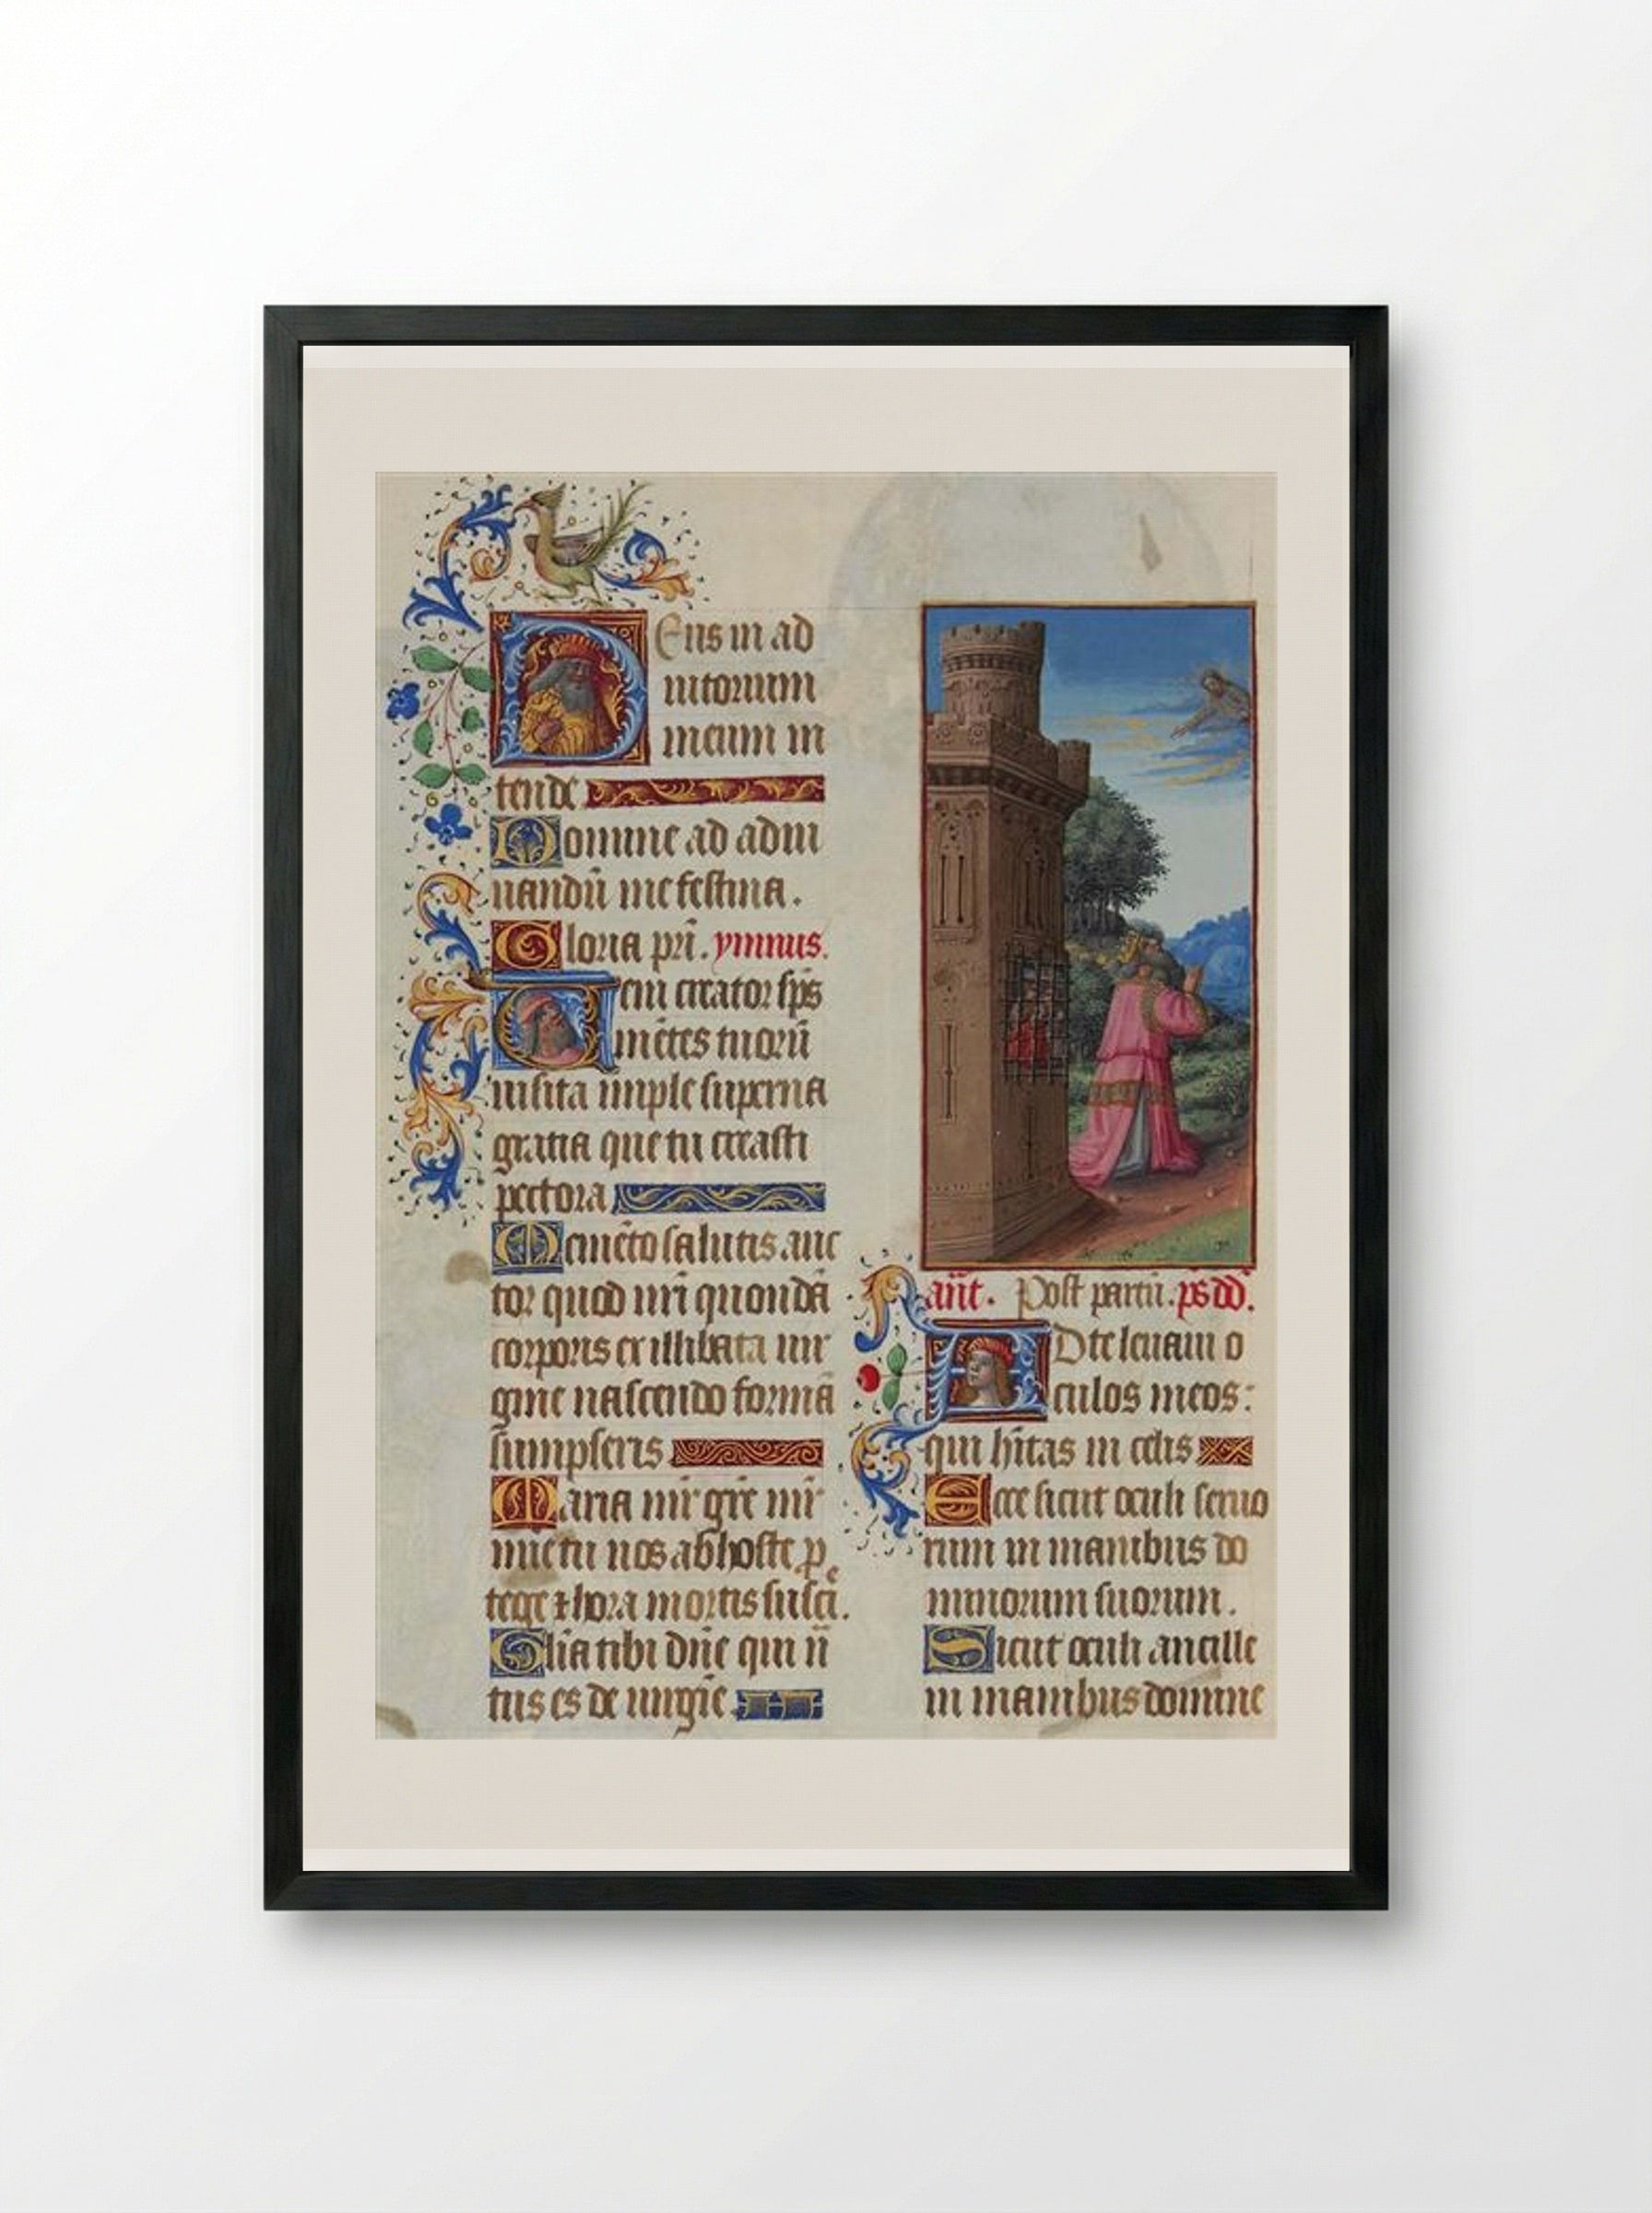 Deus in ad
iutorium
meum in
tende
Domine ad adiu
uandū me festina.
Gloria pri̅. ymnus.
Ueni creator sp̄s
mētes tuorū
uisita imple superna
gratia que tu creasti
pectora
Memēto salutis auc
tor quod nri̅ quondā
corporis ex illibata uir
gine nascendo formā
sumpseris
Maria mr̄ grē mr̄
mie tu nos ab hoste p̲
tege et hora mortis suscipe.
Glīa tibi dn̄e qui n̄
tus es de uirgīe
an̄t. Post partū. ps dd̄.
AD te leuaui o
culos meos:
qui hītas in celis
Ecce sicut oculi seruo
rum in manibus do
minorum suorum.
Sicut oculi ancille
in manibus domine